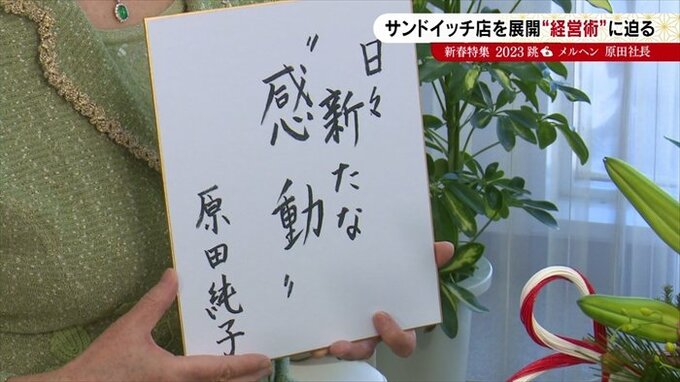 サンドイッチ店を展開“経営術”に迫る
新春特集 2023跳 メルヘン 原田社長
日々新たな
“感動”
原田純子